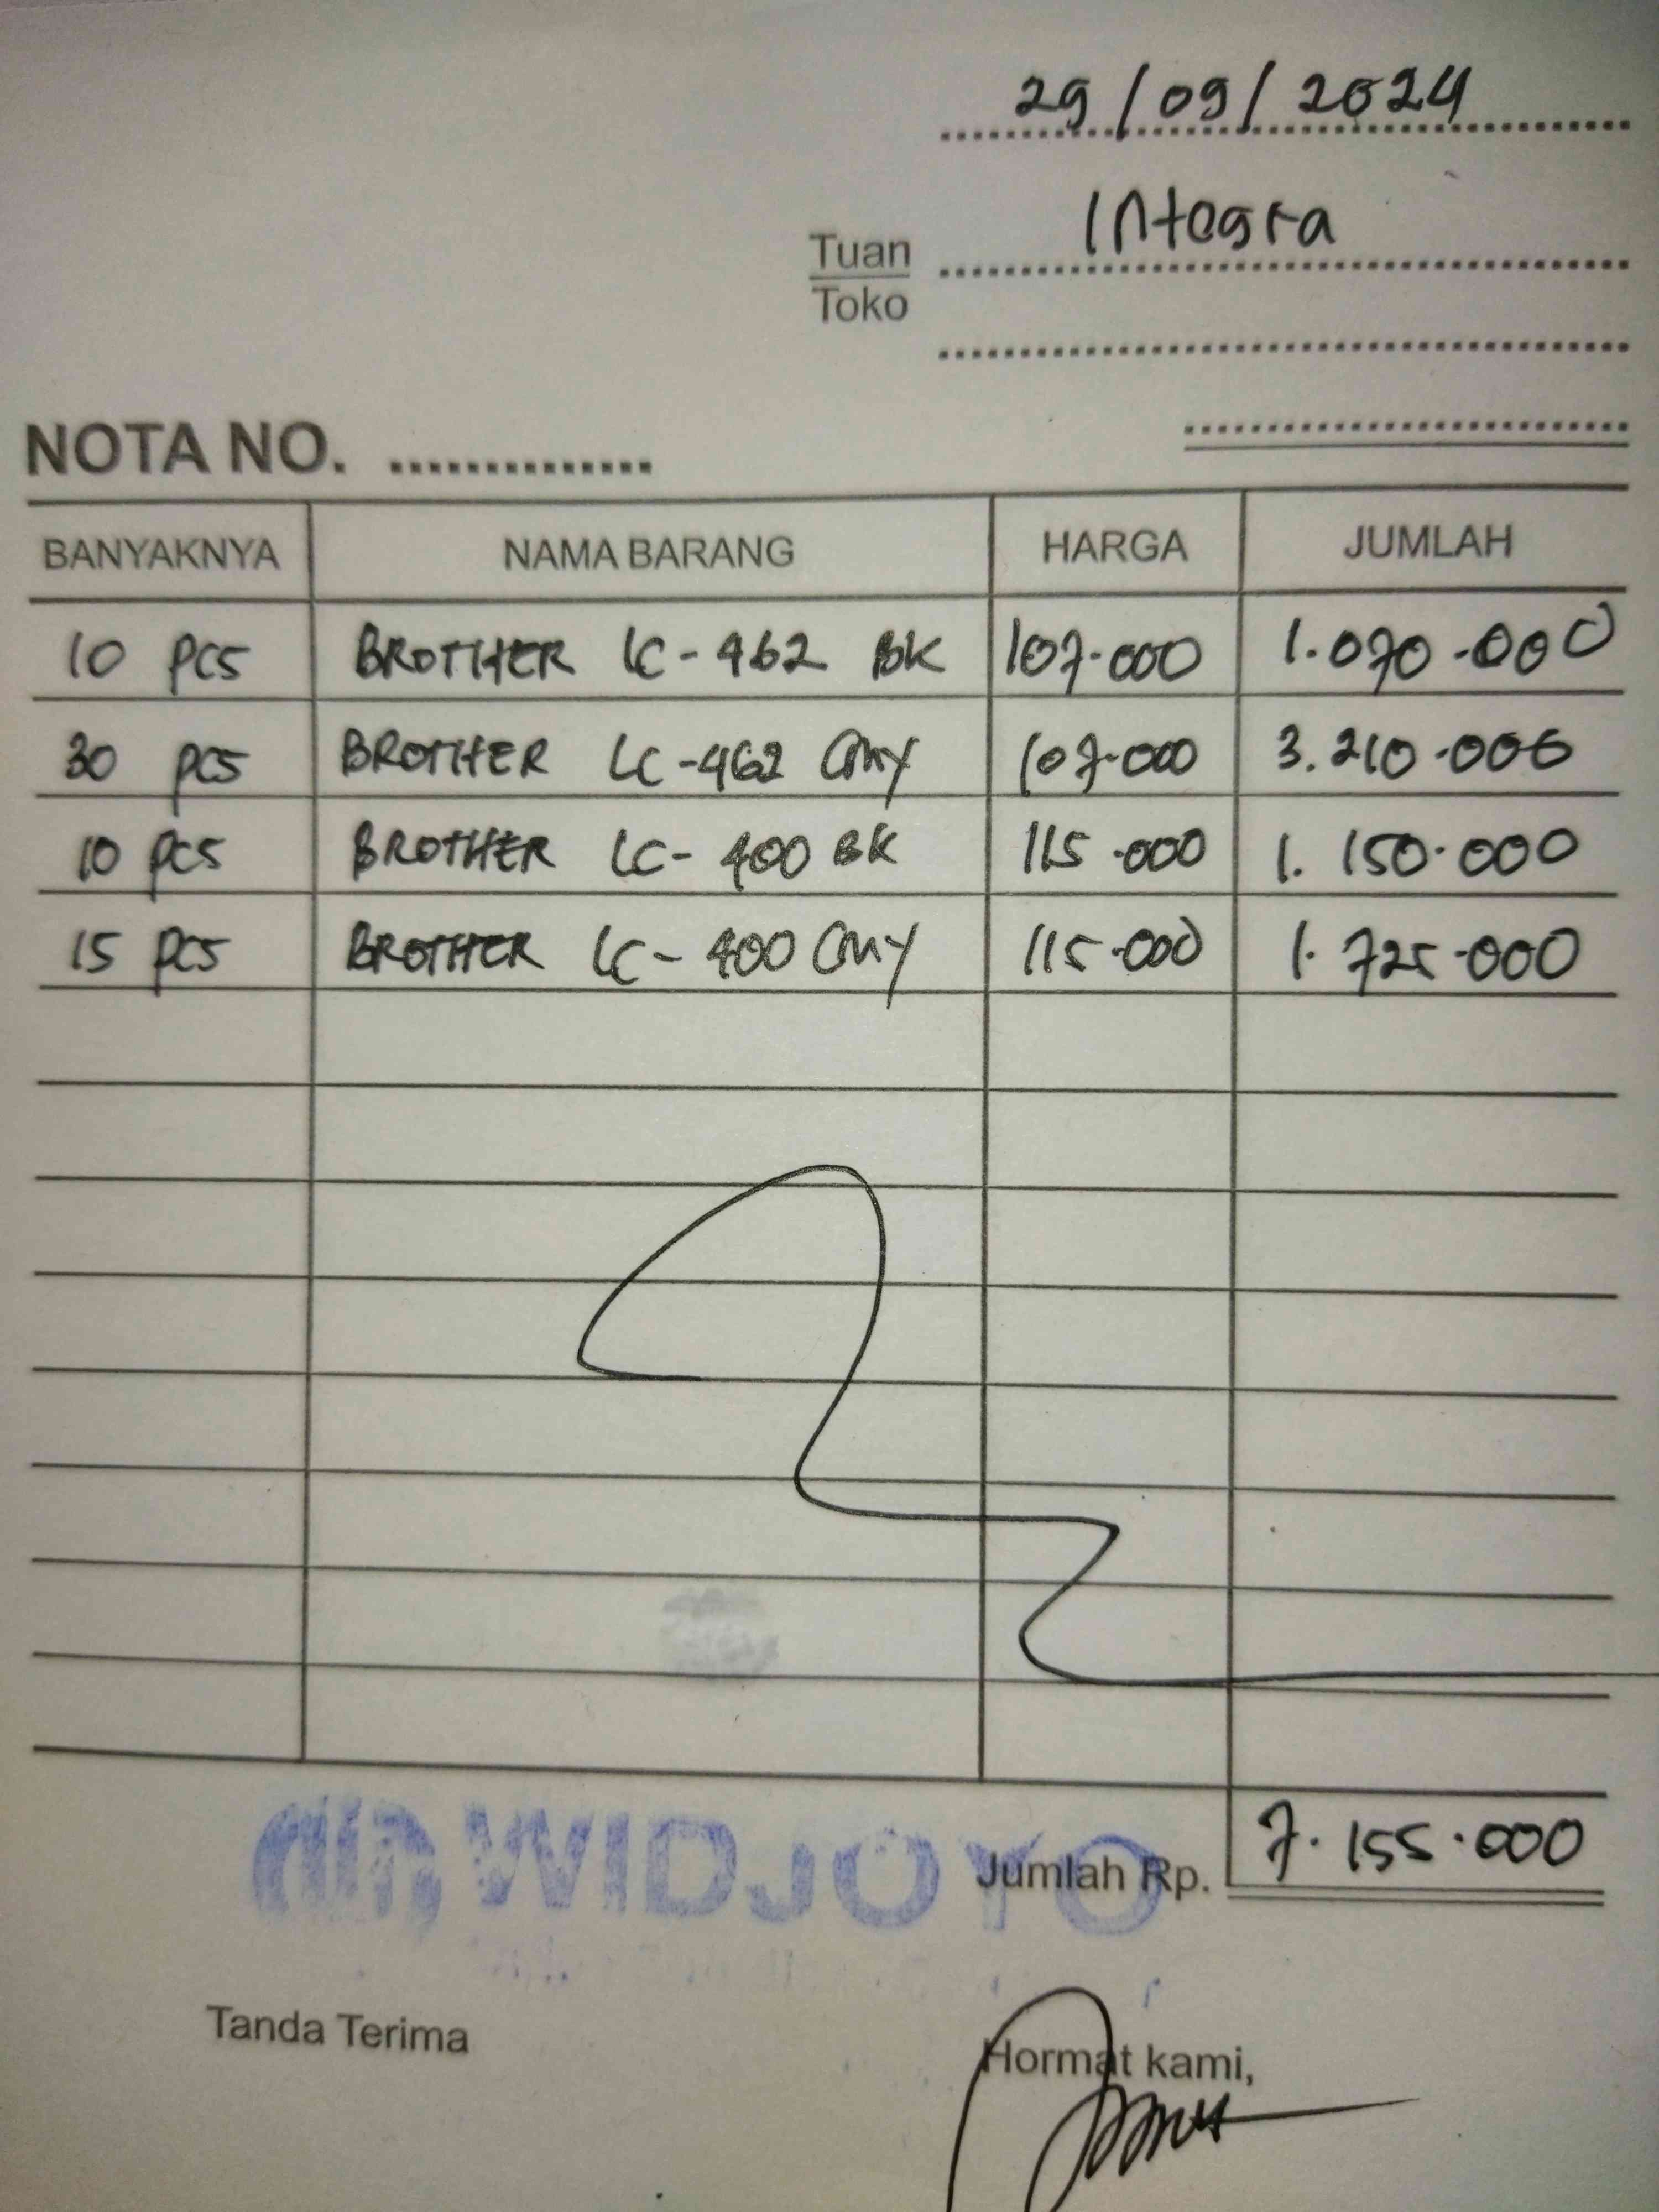 29/09/2024
Tuan Integra
Toko
NOTA NO. ..............
BANYAKNYA NAMA BARANG HARGA JUMLAH
10 pcs BROTHER LC-462 BK 107.000 1.070.000
30 pcs BROTHER LC-462 CMY 107.000 3.210.000
10 pcs BROTHER LC-400 BK 115.000 1.150.000
15 pcs BROTHER LC-400 CMY 115.000 1.725.000
WIDJOYO
Jumlah Rp. 7.155.000
Tanda Terima Hormat kami,